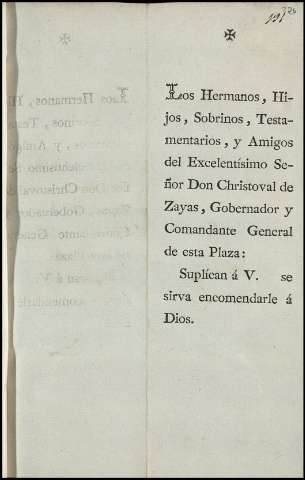 ✠
Los Hermanos, Hi-
jos, Sobrinos, Testa-
mentarios, y Amigos
del Excelentísimo Se-
ñor Don Christoval de
Zayas, Gobernador y
Comandante General
de esta Plaza:
Suplícan á V. se
sirva encomendarle á
Dios.